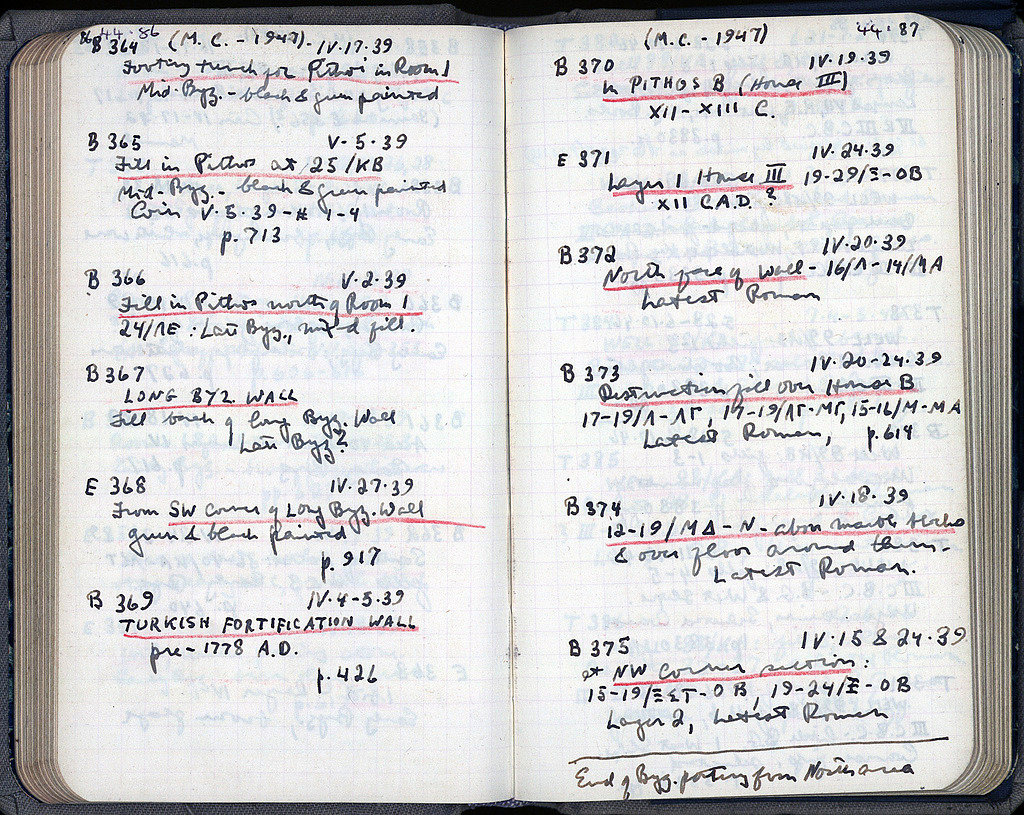 44·86
B 364 (M.C.-1947). IV·17·39
Footing trench for Pithoi in Room 1
Mid. Byz. - black & green painted
B 365 V·5·39
Fill in Pithos at 25/KB
Mid. Byz. - black & green painted
Coin V·5·39-# 1-4
p.713
B 366 V·2·39
Fill in Pithos north of Room 1
24/ΛE: Late Byz., mix'd fill.
B 367
LONG BYZ. WALL
Fill back of long Byz. Wall
Late Byz?
E 368 IV·27·39
From SW Corner of Long Byz. Wall
green & black painted
p. 917
B 369 IV·4-5·39
TURKISH FORTIFICATION WALL
pre-1778 A.D.
p.426
(M.C.-1947) 44·87
B 370 IV·19·39
In PITHOS B (House III)
XII-XIII C.
E 371 IV·24·39
Layer 1 House III 19-29/Ξ-OB
XII C.A.D. ?
B 372 IV·20·39
North face of wall - 16/Λ-14/MA
Latest Roman
B 373 IV·20-24·39
Destruction fill over House B
17-19/Λ-ΛΓ, 17-19/ΛΓ-MΓ, 15-16/M-MA
Latest Roman, p.614
B 374 IV·18·39
12-19/MΔ-N- above marble blocks
& over floor around them.
Latest Roman.
B 375 IV·15 & 24·39
at NW Corner section:
15-19/ΞΣΤ-OB, 19-24/Ξ-OB
Layer 2, Latest Roman
End of Byz. pottery from North area